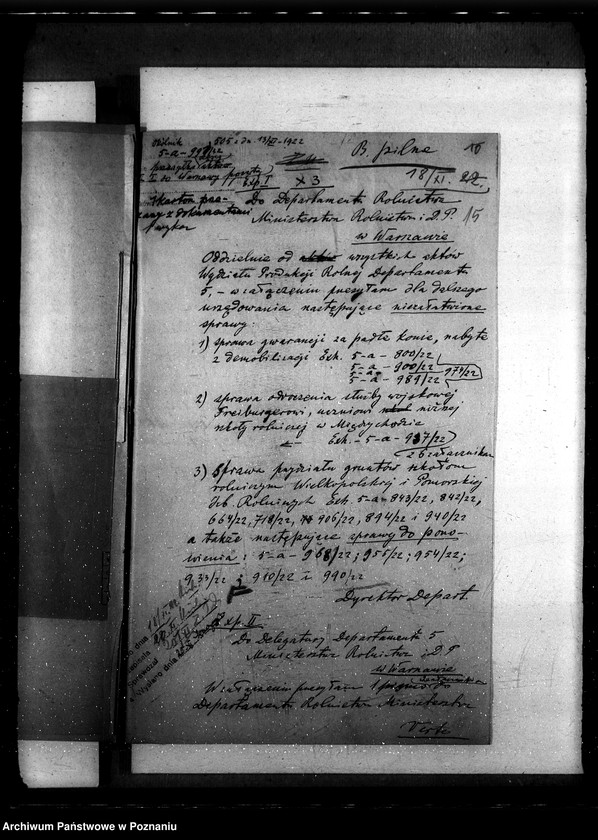 505 z dn. 13/XI-1922
5-a-998/22
B. pilne
16
18/XI. 22.
Exp. I
x 3
Do Departamentu Rolnictwa
Ministerstwa Rolnictwa i D.P.
15
w Warszawie
Oddzielnie od wszystkich aktów
Wydziału Produkcji Rolnej Departamentu
5, - w załączeniu przesyłam dla dalszego
urzędowania następujące niezałatwione
sprawy:
1) sprawa gwarancji za padłe konie, nabyte
z demobilizacji Ech. 5-a-800/22
5-a-900/22
5-a-989/22
974/22
2) sprawa odroczenia służby wojskowej
Freiburgerowi, uczniowi niższej
szkoły rolniczej w Międzychodzie
Ech.-5-a-937/22
z 6 załącznikami
3) Sprawa przydziału gruntów szkołom
rolniczym Wielkopolskiej i Pomorskiej
Izb. Rolniczych Ech. 5-a-843/22, 842/22,
664/22, 718/22, 906/22, 894/22 i 940/22
a także następujące sprawy do pono-
wienia: 5-a-968/22; 955/22; 954/22;
933/22; 910/22 i 990/22
Dyrektor Depart.
Exp. II
Do Delegatury Departamentu 5
Ministerstwa Rolnictwa i D.P.
w Warszawie
W załączeniu przesyłam 1 pismo do
Departamentu Rolnictwa Ministerstwa
Verte
Archiwum Państwowe w Poznaniu